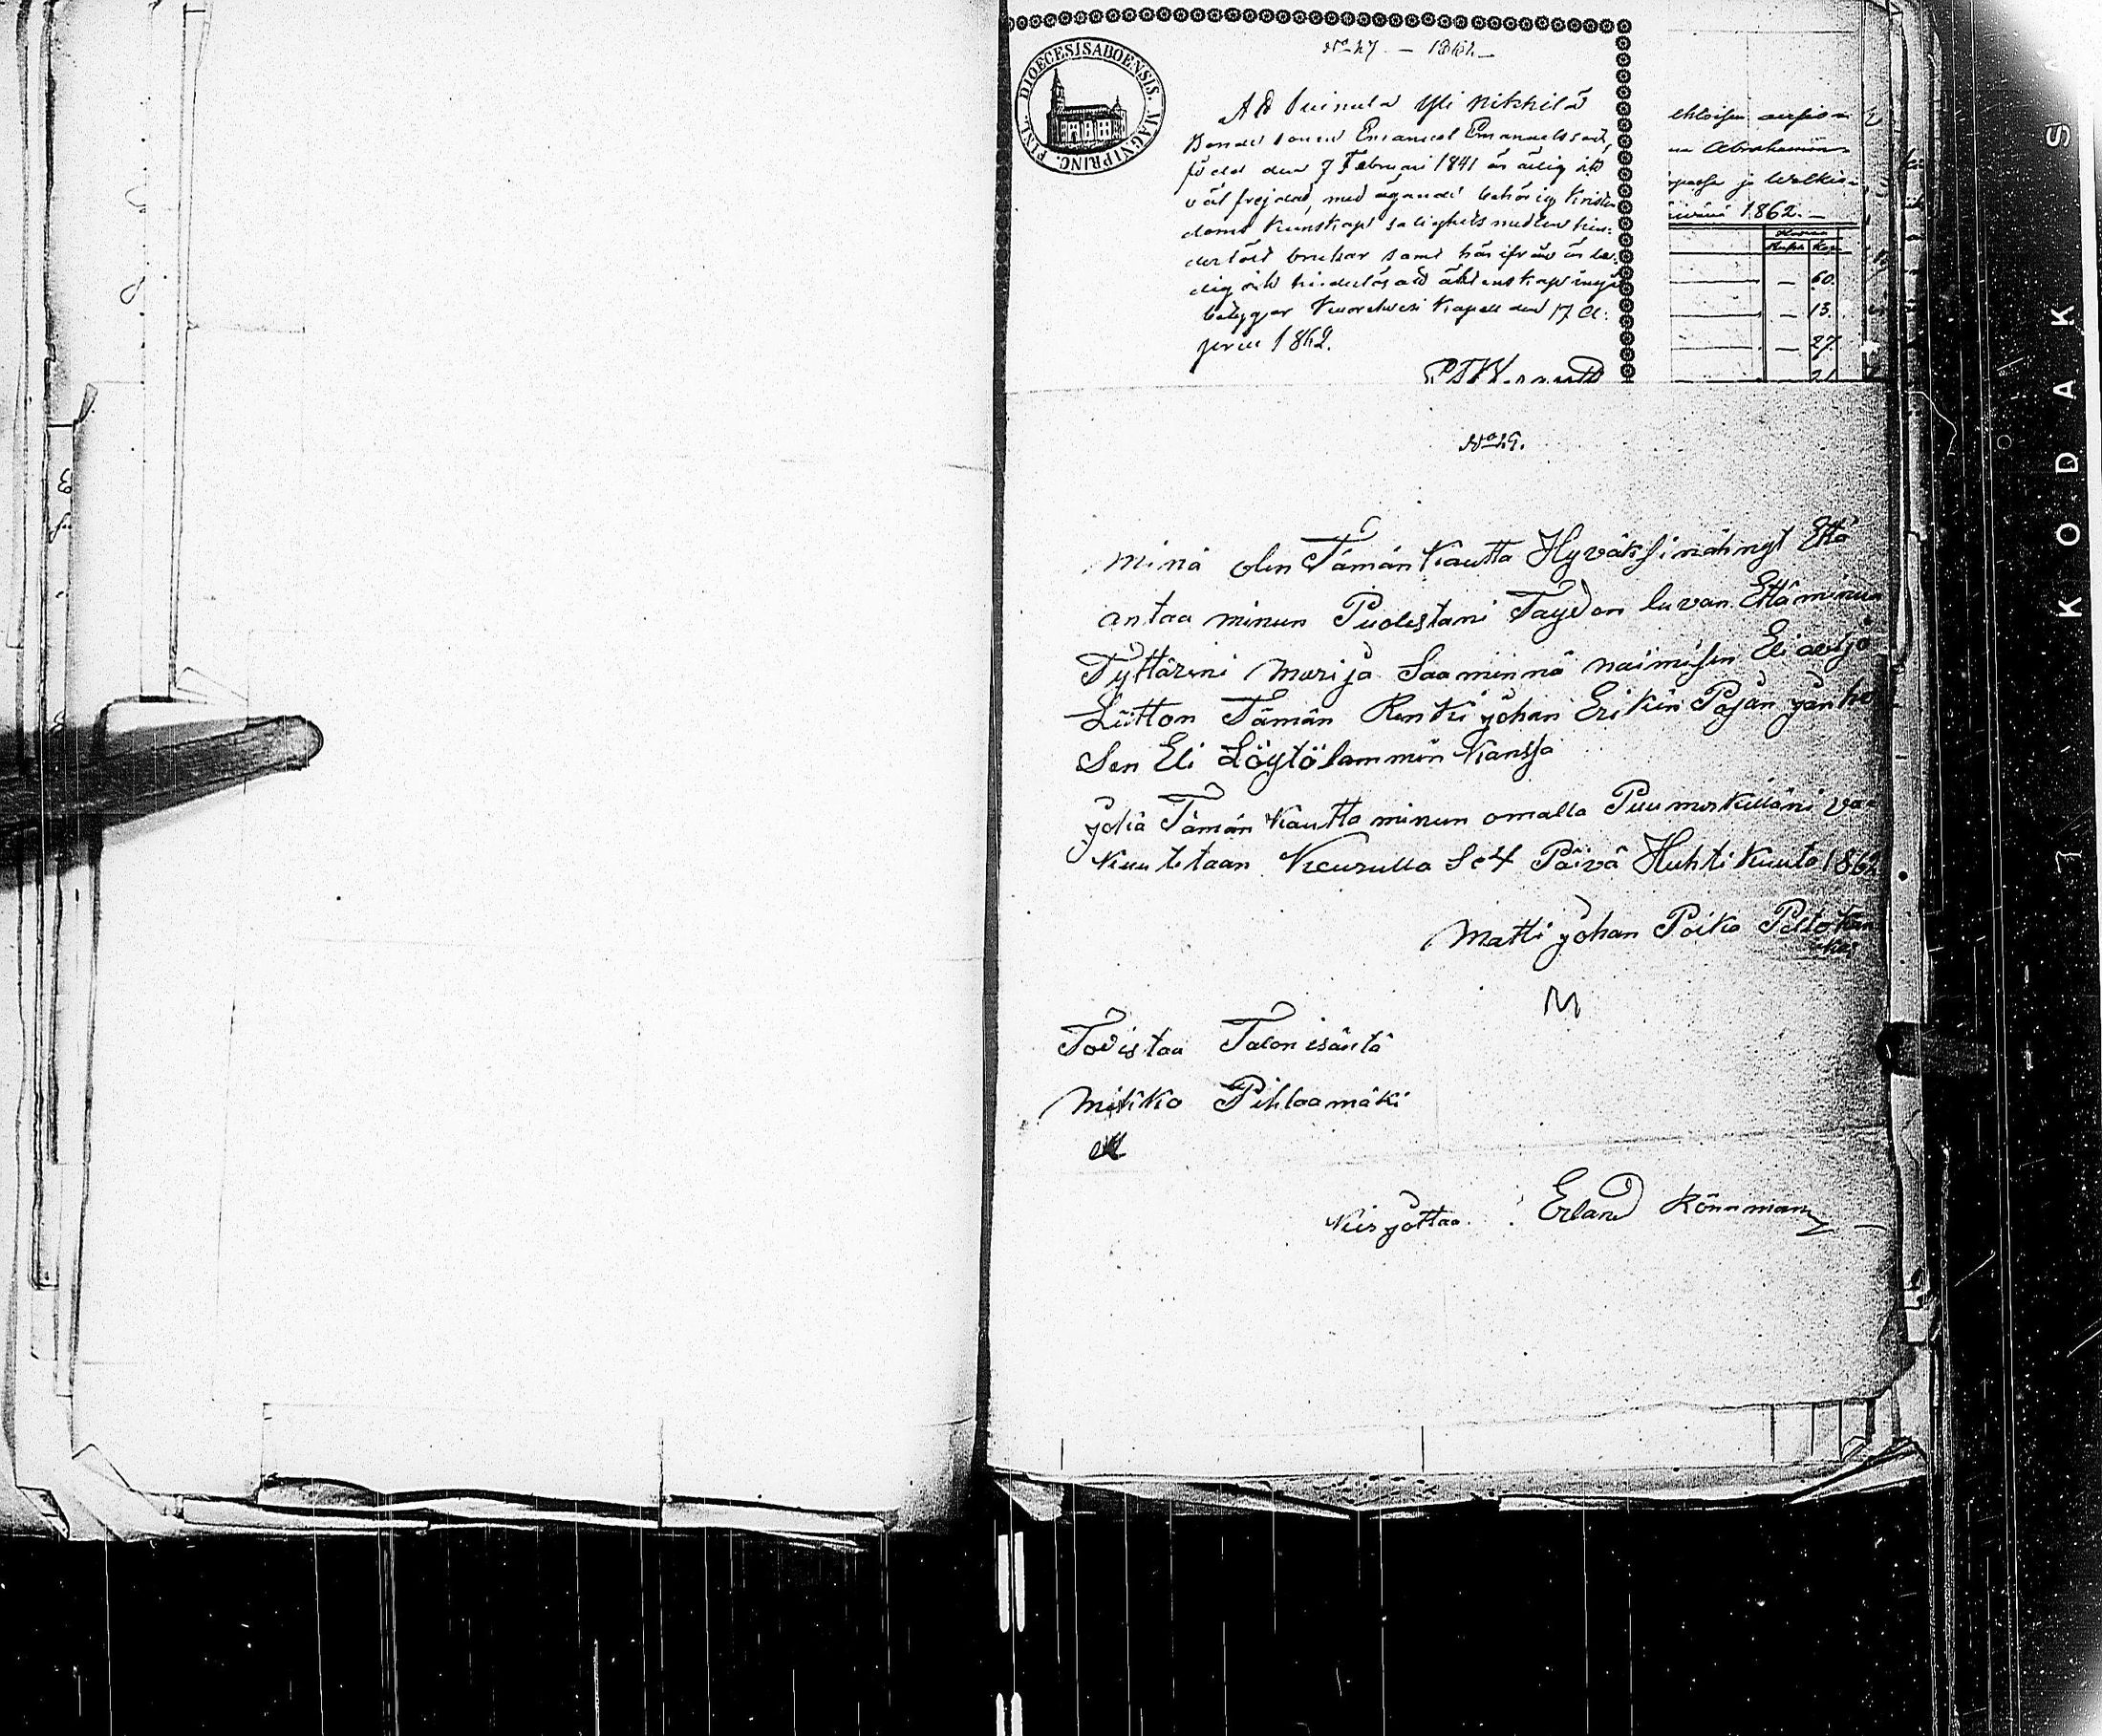 DIOECESIS ABOENSIS. MAGNI PRINC. FINL.
No 27 – 1862
Att Yli Mikkilä
Bonde sonen Emanuel Emanuelsson,
född den 7 Februari 1841 är ärlig och
väl frejdad, med ägande behörig Kristen
doms Kunskap salighets medlen hin-
derlöst brukar samt härifrån är le-
dig och hinderlös till äktenskaps ingå
betygar Kuorehvesi Kapell den 17 A-
1862.
ja
1862.
Kop.
60.
13.
27.
21
No 29.
Minä olen Tämän Kautta Hyväksi nähnyt Että
antaa minun Puolestani Taydon luvan Että minun
Tyttäreni Marija Saa mennä naimisen Eli avijo
Liitton Tämän Renki johan Erikin Pojan jänhe
Sen Eli Löytölammin Kanssa
joka Tämän Kautta minun omalla Puumerkilläni va
Kuutetaan Keurulla Se 4 Päivä Huhti Kuuta 1862
Matti johan Poika Peltokan
M
Todistaa Talon isäntä
Mikko Pihlaamäki
Kirjottaa Erland Könnman
KODAK S